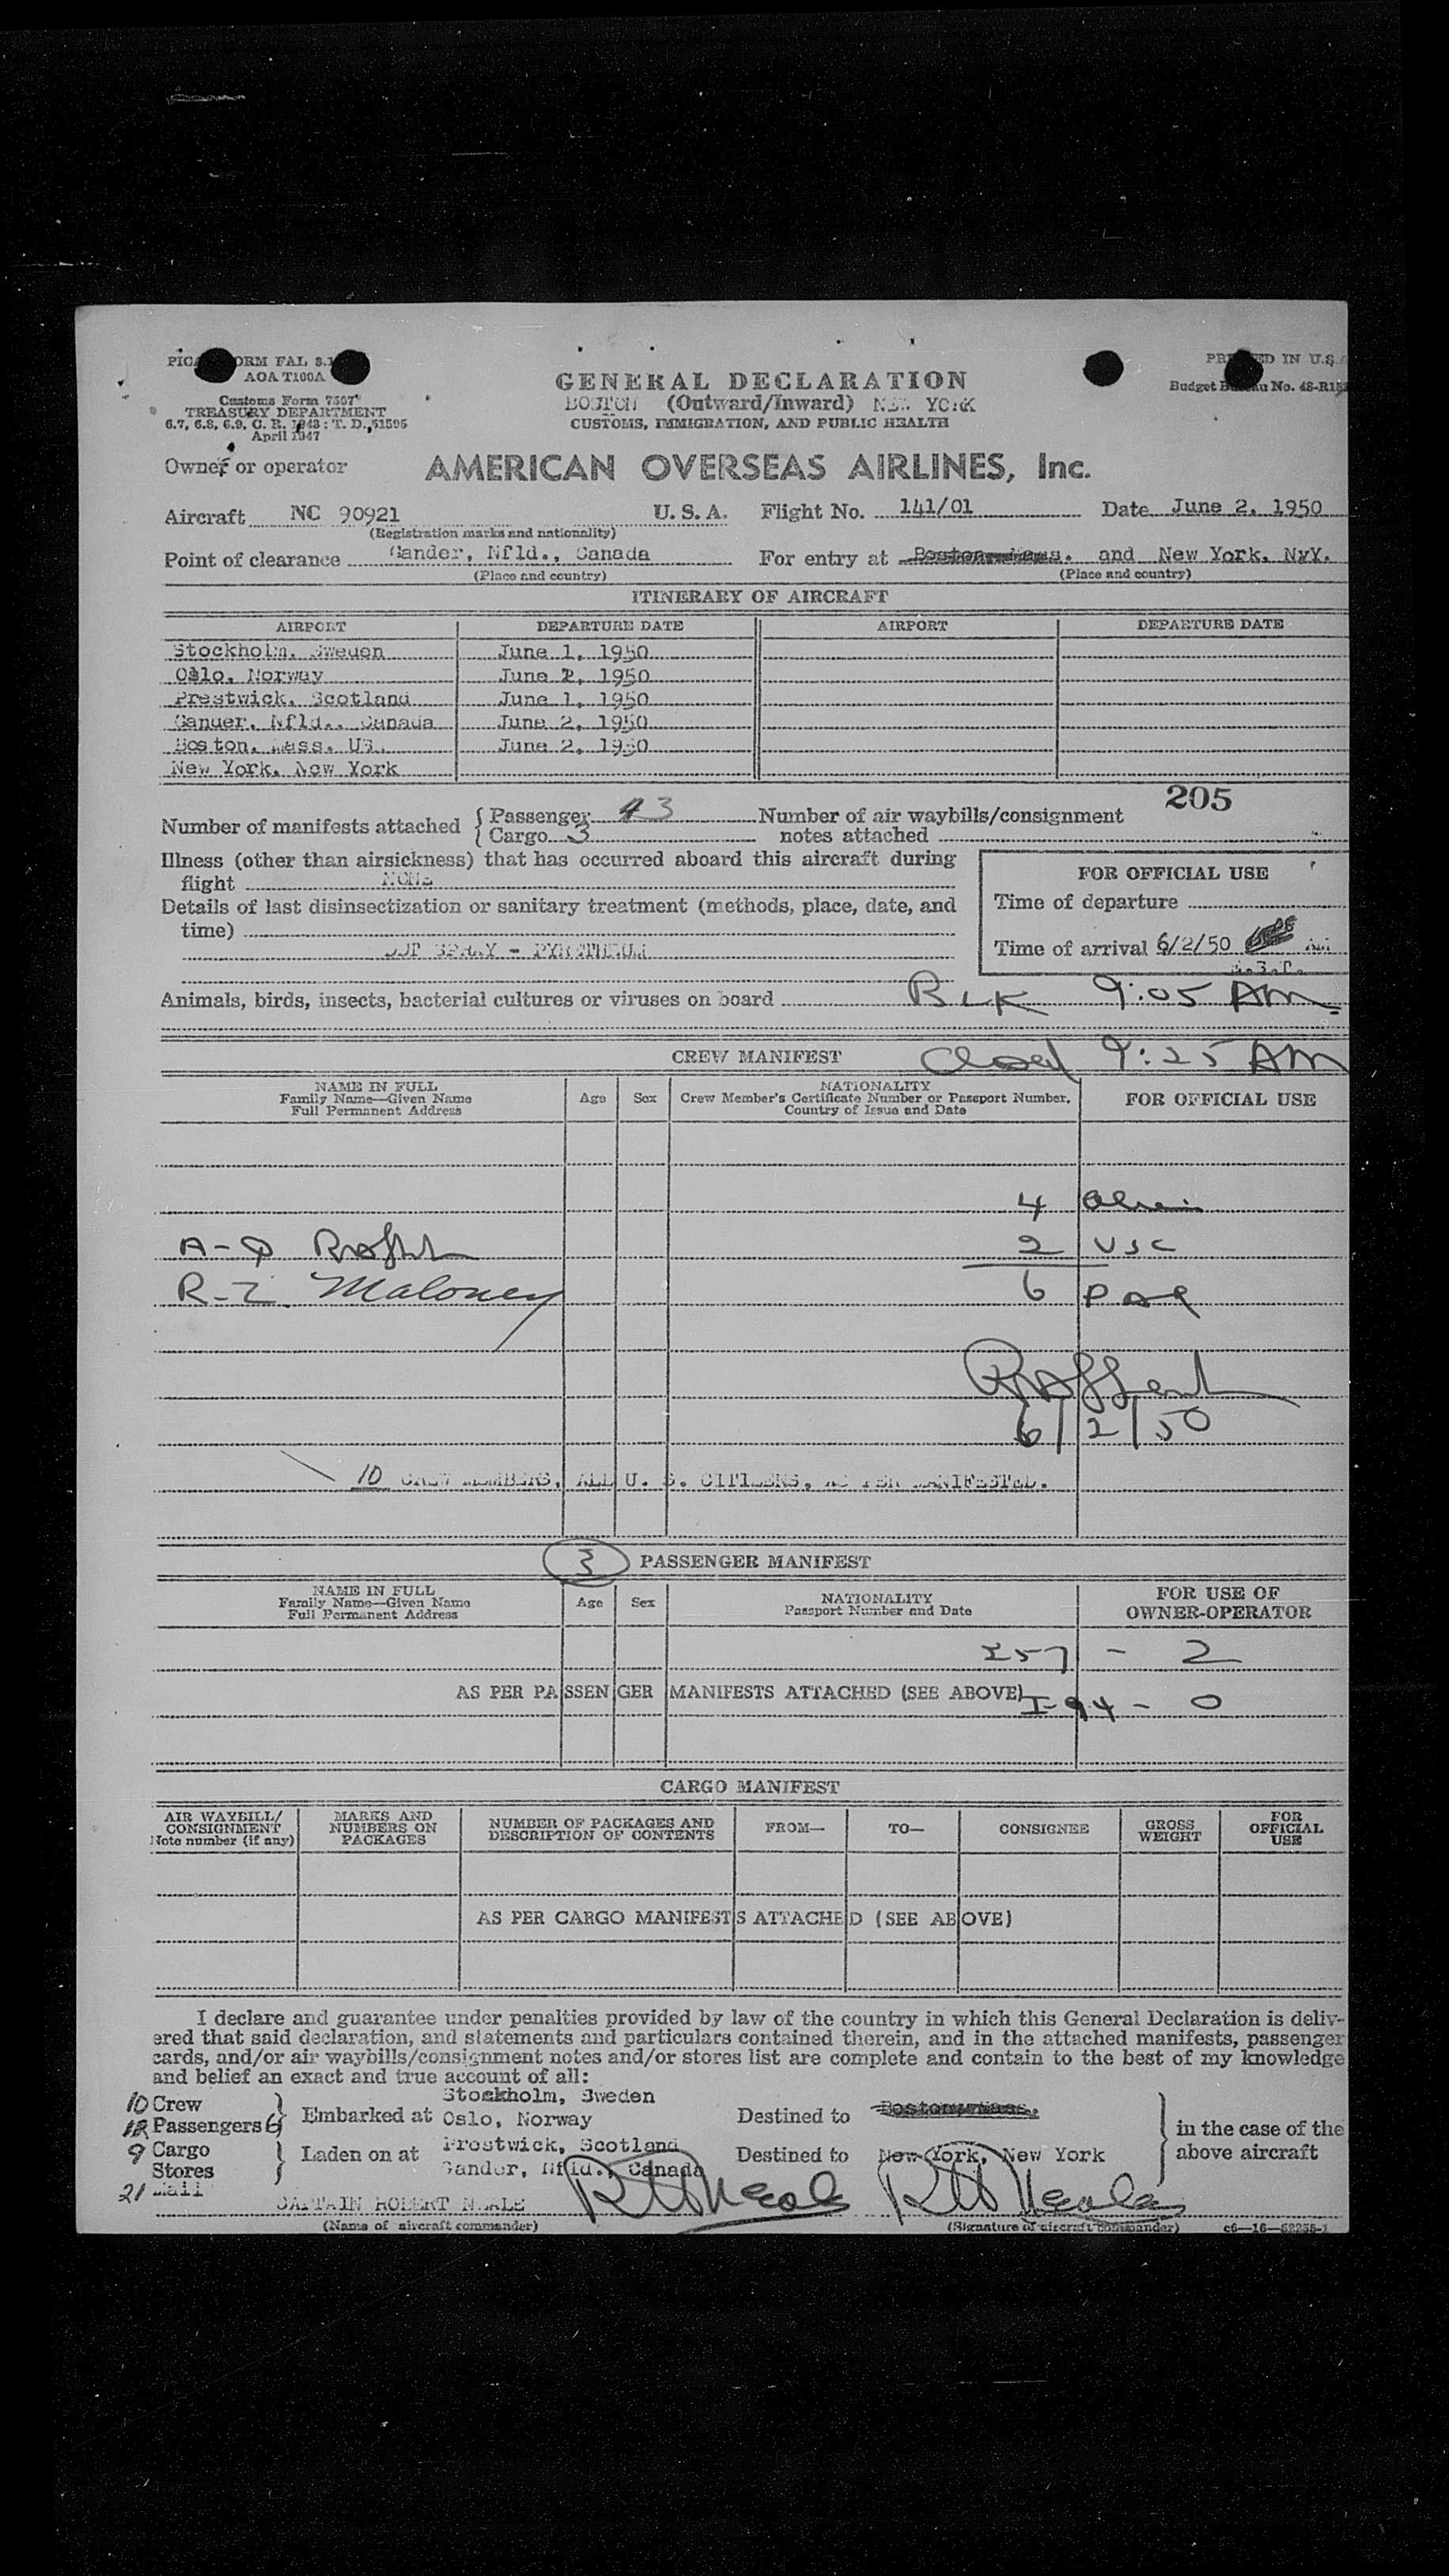 GENERAL DECLARATION
BOSTON (Outward/Inward) NEW YORK
CUSTOMS, IMMIGRATION, AND PUBLIC HEALTH
AOA T100A
Customs Form 7507
TREASURY DEPARTMENT
April 1947
PRINTED IN U.S.A
Budget Bureau No. 48-R15
Owner or operator AMERICAN OVERSEAS AIRLINES, Inc.
Aircraft NC 90921 U. S. A. Flight No. 141/01 Date June 2, 1950
(Registration marks and nationality)
Point of clearance Gander, Nfld., Canada For entry at and New York, NYY.
(Place and country) (Place and country)
ITINERARY OF AIRCRAFT
AIRPORT DEPARTURE DATE AIRPORT DEPARTURE DATE
Stockholm, Sweden June 1, 1950
Oslo, Norway June 1, 1950
Prestwick, Scotland June 1, 1950
Gander, Nfld., Canada June 2, 1950
Boston, Mass. US. June 2, 1950
New York, New York
205
Number of manifests attached { Passenger 43 Number of air waybills/consignment
{ Cargo 3 notes attached
Illness (other than airsickness) that has occurred aboard this aircraft during
flight NONE
Details of last disinsectization or sanitary treatment (methods, place, date, and
time)
DDT SPRAY - PYRETHRUM
FOR OFFICIAL USE
Time of departure
Time of arrival 6/2/50 AM
Animals, birds, insects, bacterial cultures or viruses on board BLK 9:05 AM
CREW MANIFEST Closed 9:25 AM
NAME IN FULL
Family Name—Given Name
Full Permanent Address
Age Sex
NATIONALITY
Crew Member's Certificate Number or Passport Number,
Country of Issue and Date
FOR OFFICIAL USE
4 Alien
2 USC
R-Z Maloney 6 PAX
6/2/50
10 CREW MEMBERS, ALL U. S. CITIZENS, AS PER MANIFESTED.
3 PASSENGER MANIFEST
NAME IN FULL
Family Name—Given Name
Full Permanent Address
Age Sex
NATIONALITY
Passport Number and Date
FOR USE OF
OWNER-OPERATOR
I57 - 2
AS PER PASSENGER MANIFESTS ATTACHED (SEE ABOVE)
I-94 - 0
CARGO MANIFEST
AIR WAYBILL/
CONSIGNMENT
Note number (if any)
MARKS AND
NUMBERS ON
PACKAGES
NUMBER OF PACKAGES AND
DESCRIPTION OF CONTENTS
FROM— TO— CONSIGNEE
GROSS
WEIGHT
FOR
OFFICIAL
USE
AS PER CARGO MANIFESTS ATTACHED (SEE ABOVE)
I declare and guarantee under penalties provided by law of the country in which this General Declaration is deliv-
ered that said declaration, and statements and particulars contained therein, and in the attached manifests, passenger
cards, and/or air waybills/consignment notes and/or stores list are complete and contain to the best of my knowledge
and belief an exact and true account of all:
10 Crew
Passengers 6
9 Cargo
Stores
21 Mail
Embarked at Stockholm, Sweden
Oslo, Norway
Laden on at Prestwick, Scotland
Gander, Nfld., Canada
Destined to
Destined to New York, New York
in the case of the
above aircraft
CAPTAIN ROBERT NEALE
(Name of aircraft commander) (Signature of aircraft commander)